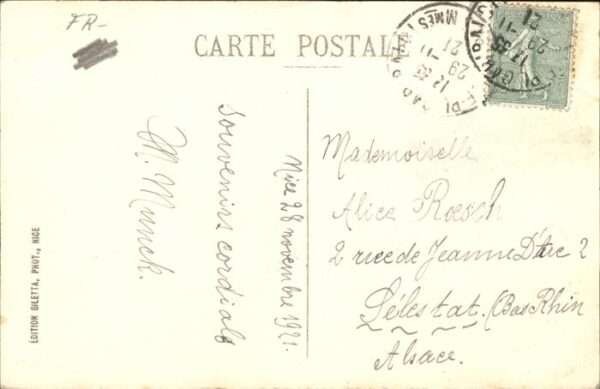 FR-
CARTE POSTALE
Nice 28 novembre 1921.
Souvenirs cordials
M. Munck.
Mademoiselle
Alice Rœsch
2 rue de Jeanne D'Arc 2
Sélestat. (Bas Rhin
Alsace.
EDITION GILETTA, PHOT., NICE
12 35
29 -11
21